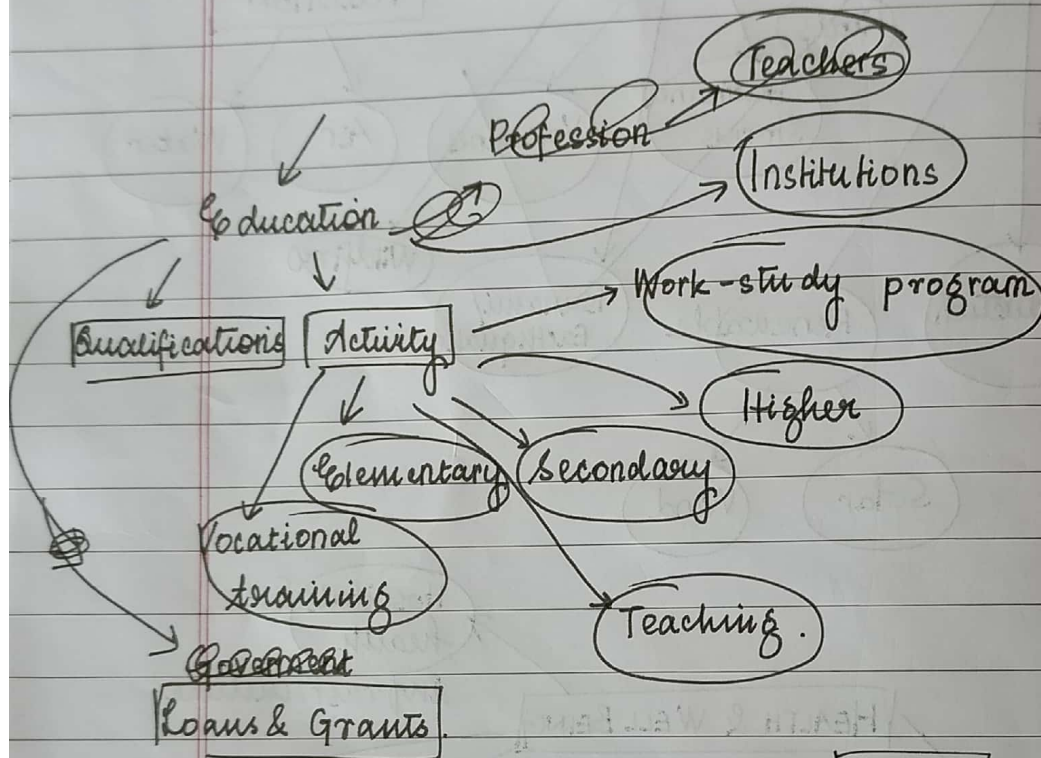 Teachers
Profession
Institutions
Education
Work-study program
Qualifications
Activity
Higher
Elementary
Secondary
Vocational
training
Teaching.
Government
Loans & Grants.